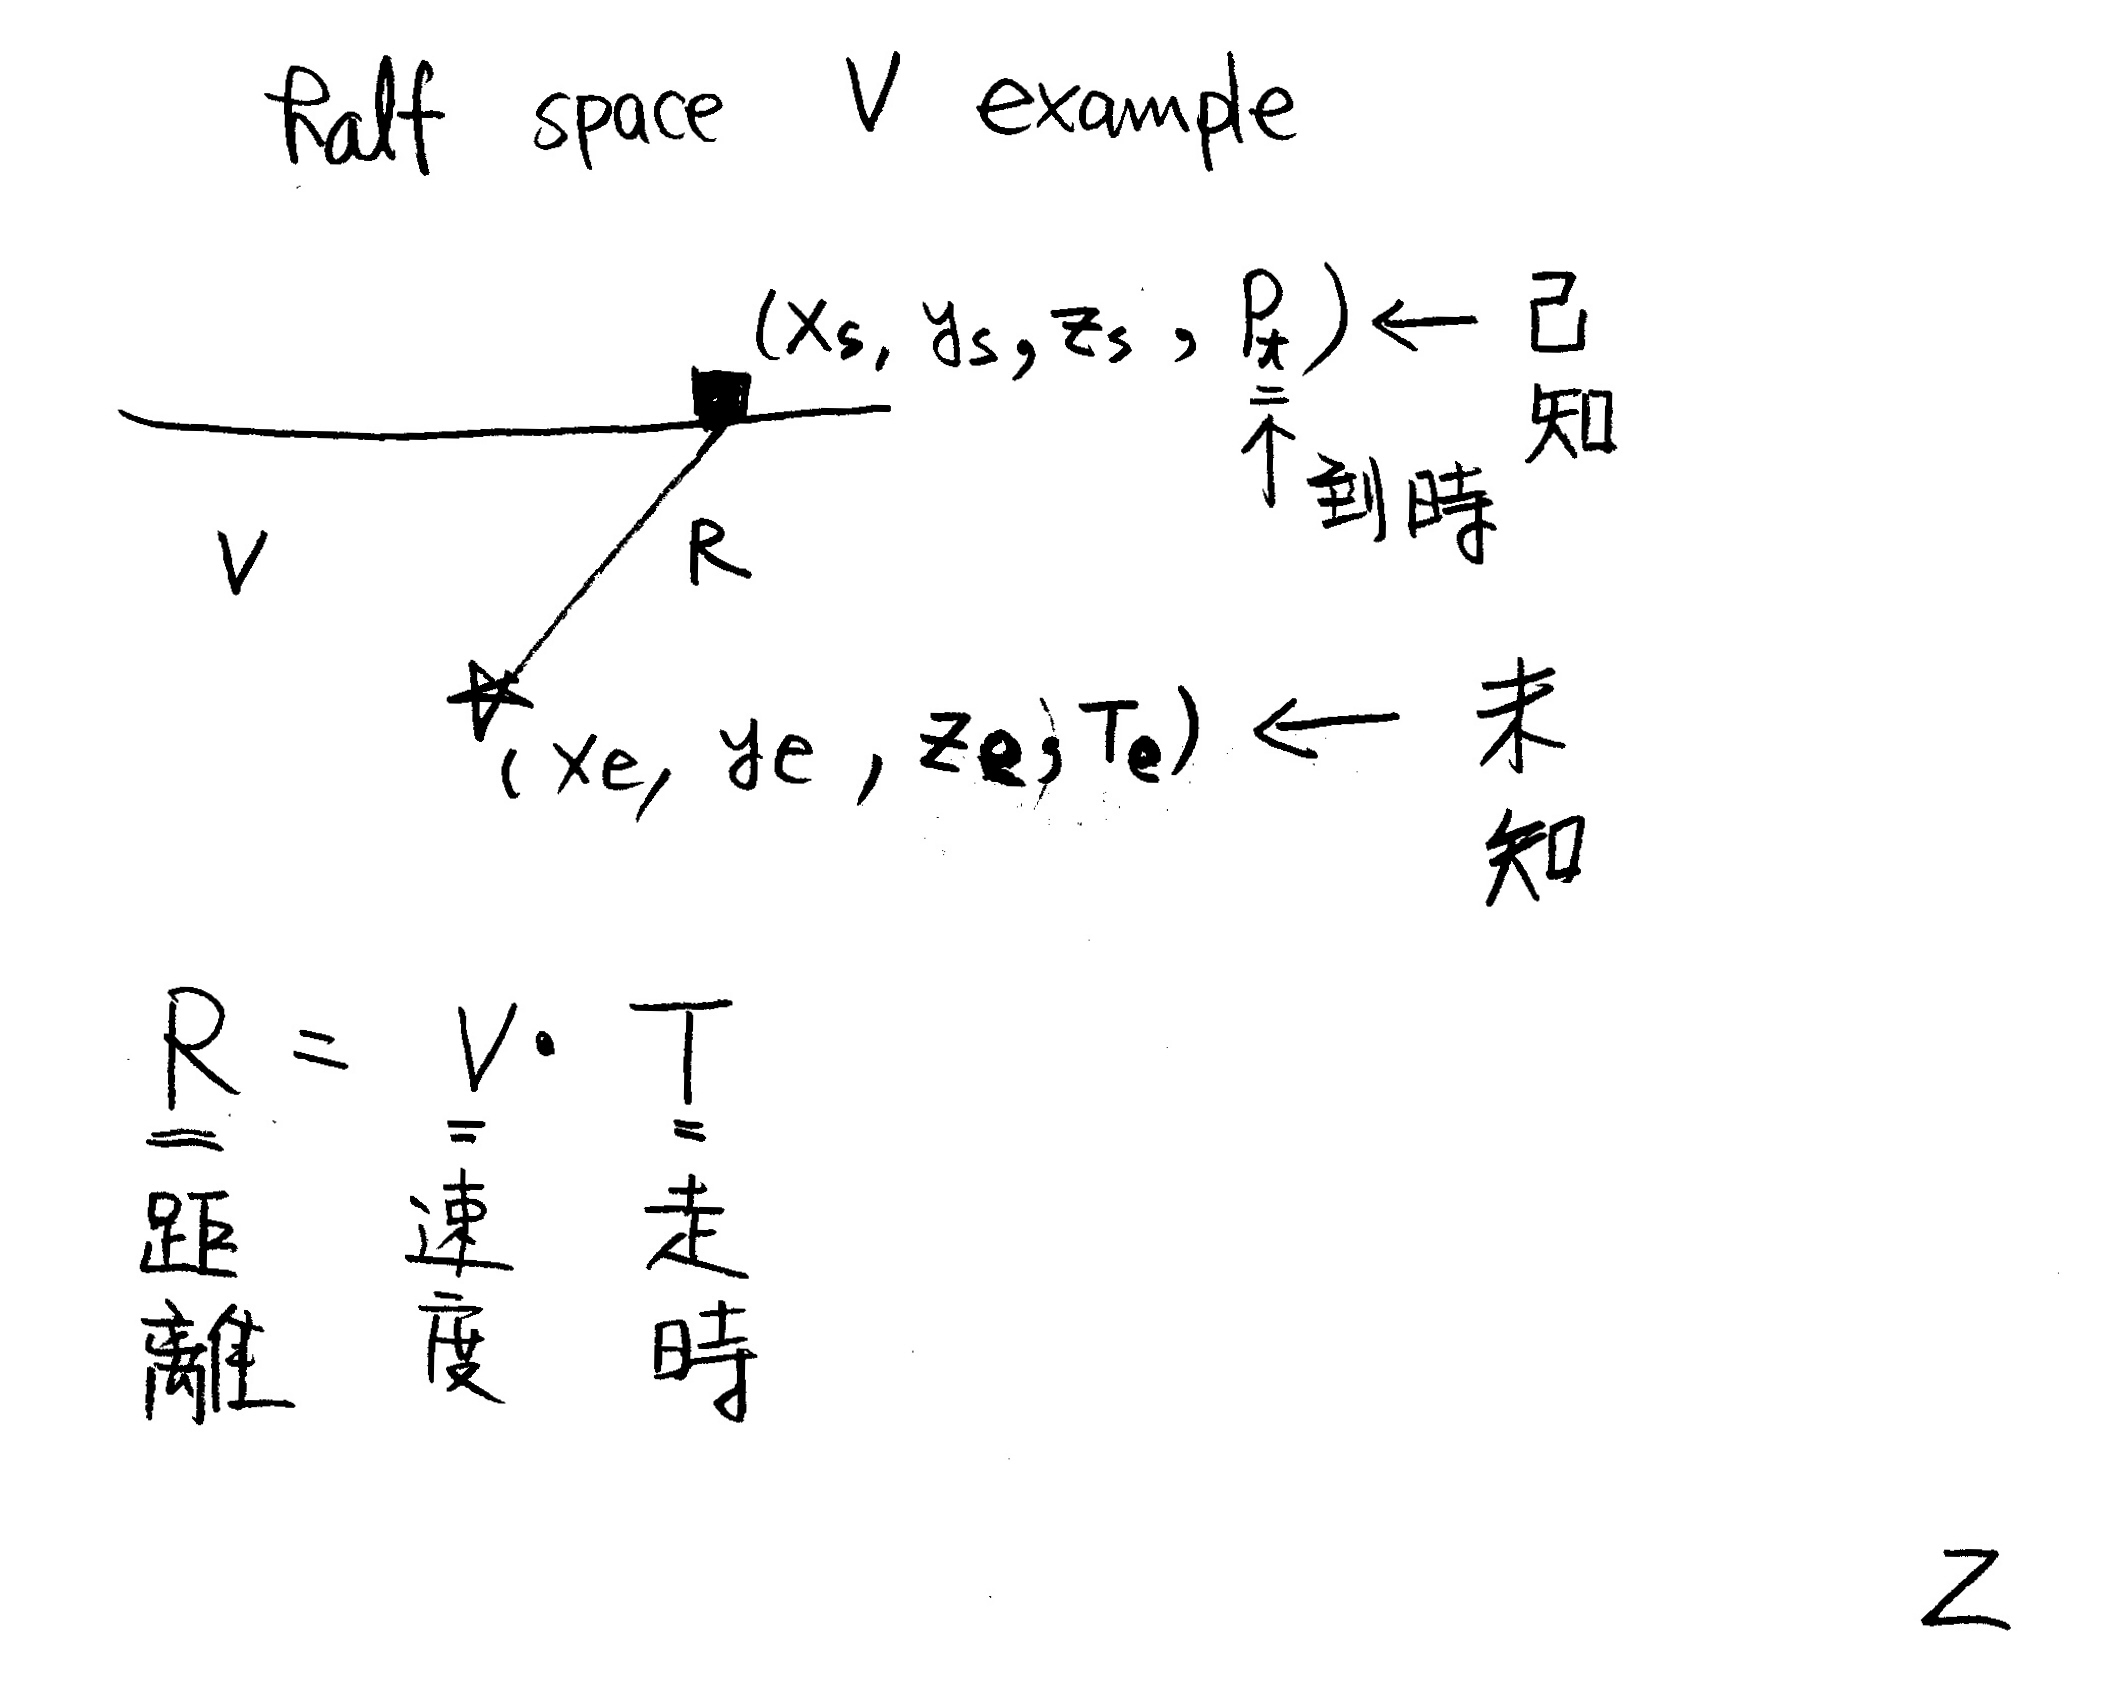 half space V example
(xs, ys, zs, Pt) ← 已知
= ↑ 到時
V
R
(xe, ye, ze, Te) ← 未知
R = V · T
= = =
距離 速度 走時
2